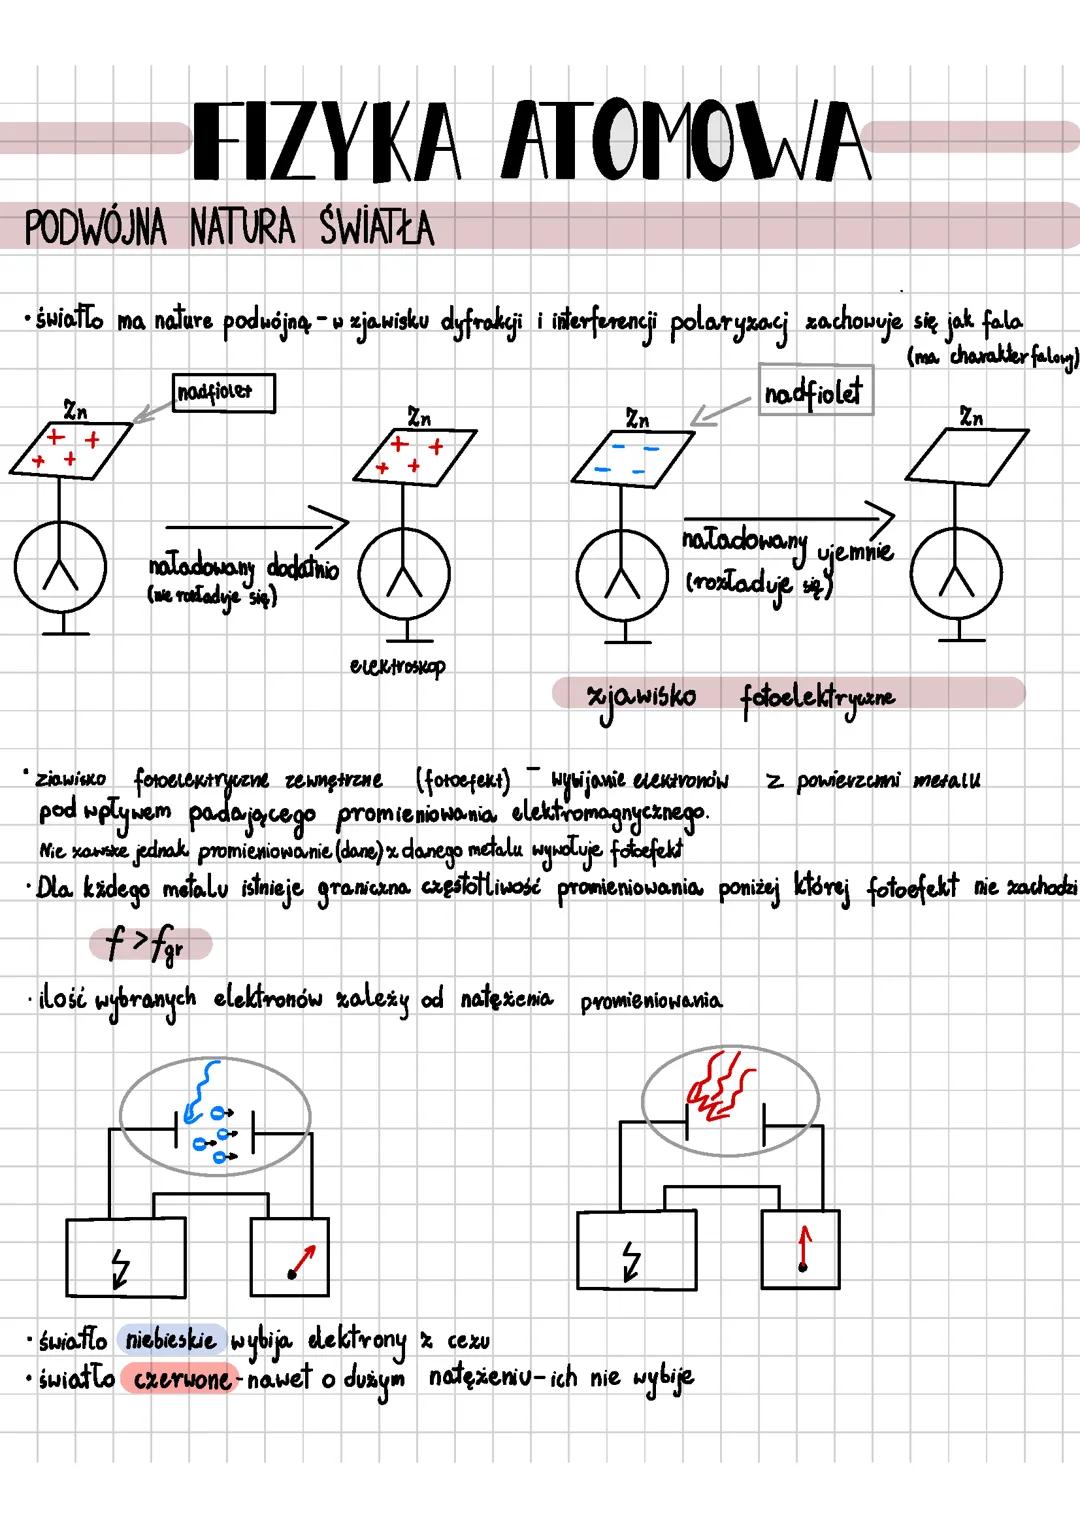 FIZYKA ATOMOWA
PODWÓJNA NATURA ŚWIATŁA
• światło ma nature podwójną - w zjawisku dyfrakcji i interferencji polaryzacj zachowuje się jak fala
(ma charakter falowy)
nadfiolet
nadfiolet
Zn
Zn
Zn
Zn
naładowany dodatnio
(nie rozładuje się)
naładowany ujemnie
(rozładuje się)
elektroskop
zjawisko fotoelektryczne
• zjawisko fotoelektryczne zewnętrzne (fotoefekt) - wybijanie elektronów z powierzchni metalu
pod wpływem padającego promieniowania elektromagnycznego.
Nie zawske jednak promieniowanie (dane) z danego metalu wywołuje fotoefekt
• Dla kżdego metalu istnieje graniczna częstotliwość promieniowania poniżej której fotoefekt nie zachodzi
f > fgr
• ilość wybranych elektronów zależy od natężenia promieniowania
• światło niebieskie wybija elektrony z cezu
• światło czerwone - nawet o dużym natężeniu - ich nie wybije